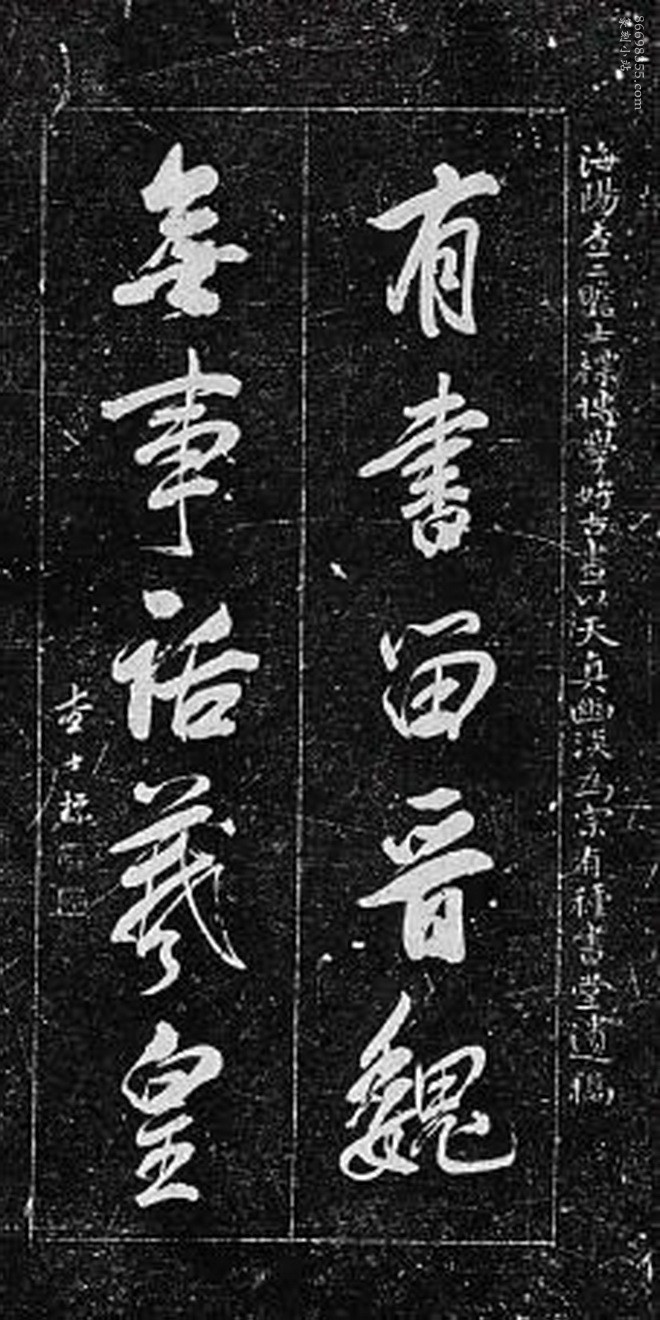 海陽查二瞻士標博學好古畫以天真幽淡為宗有種書堂遺稿
有書留晉魏
無事話羲皇
查士標
86698355.com
篆刻小站